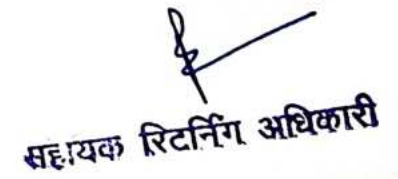 सहायक रिटर्निंग अधिकारी